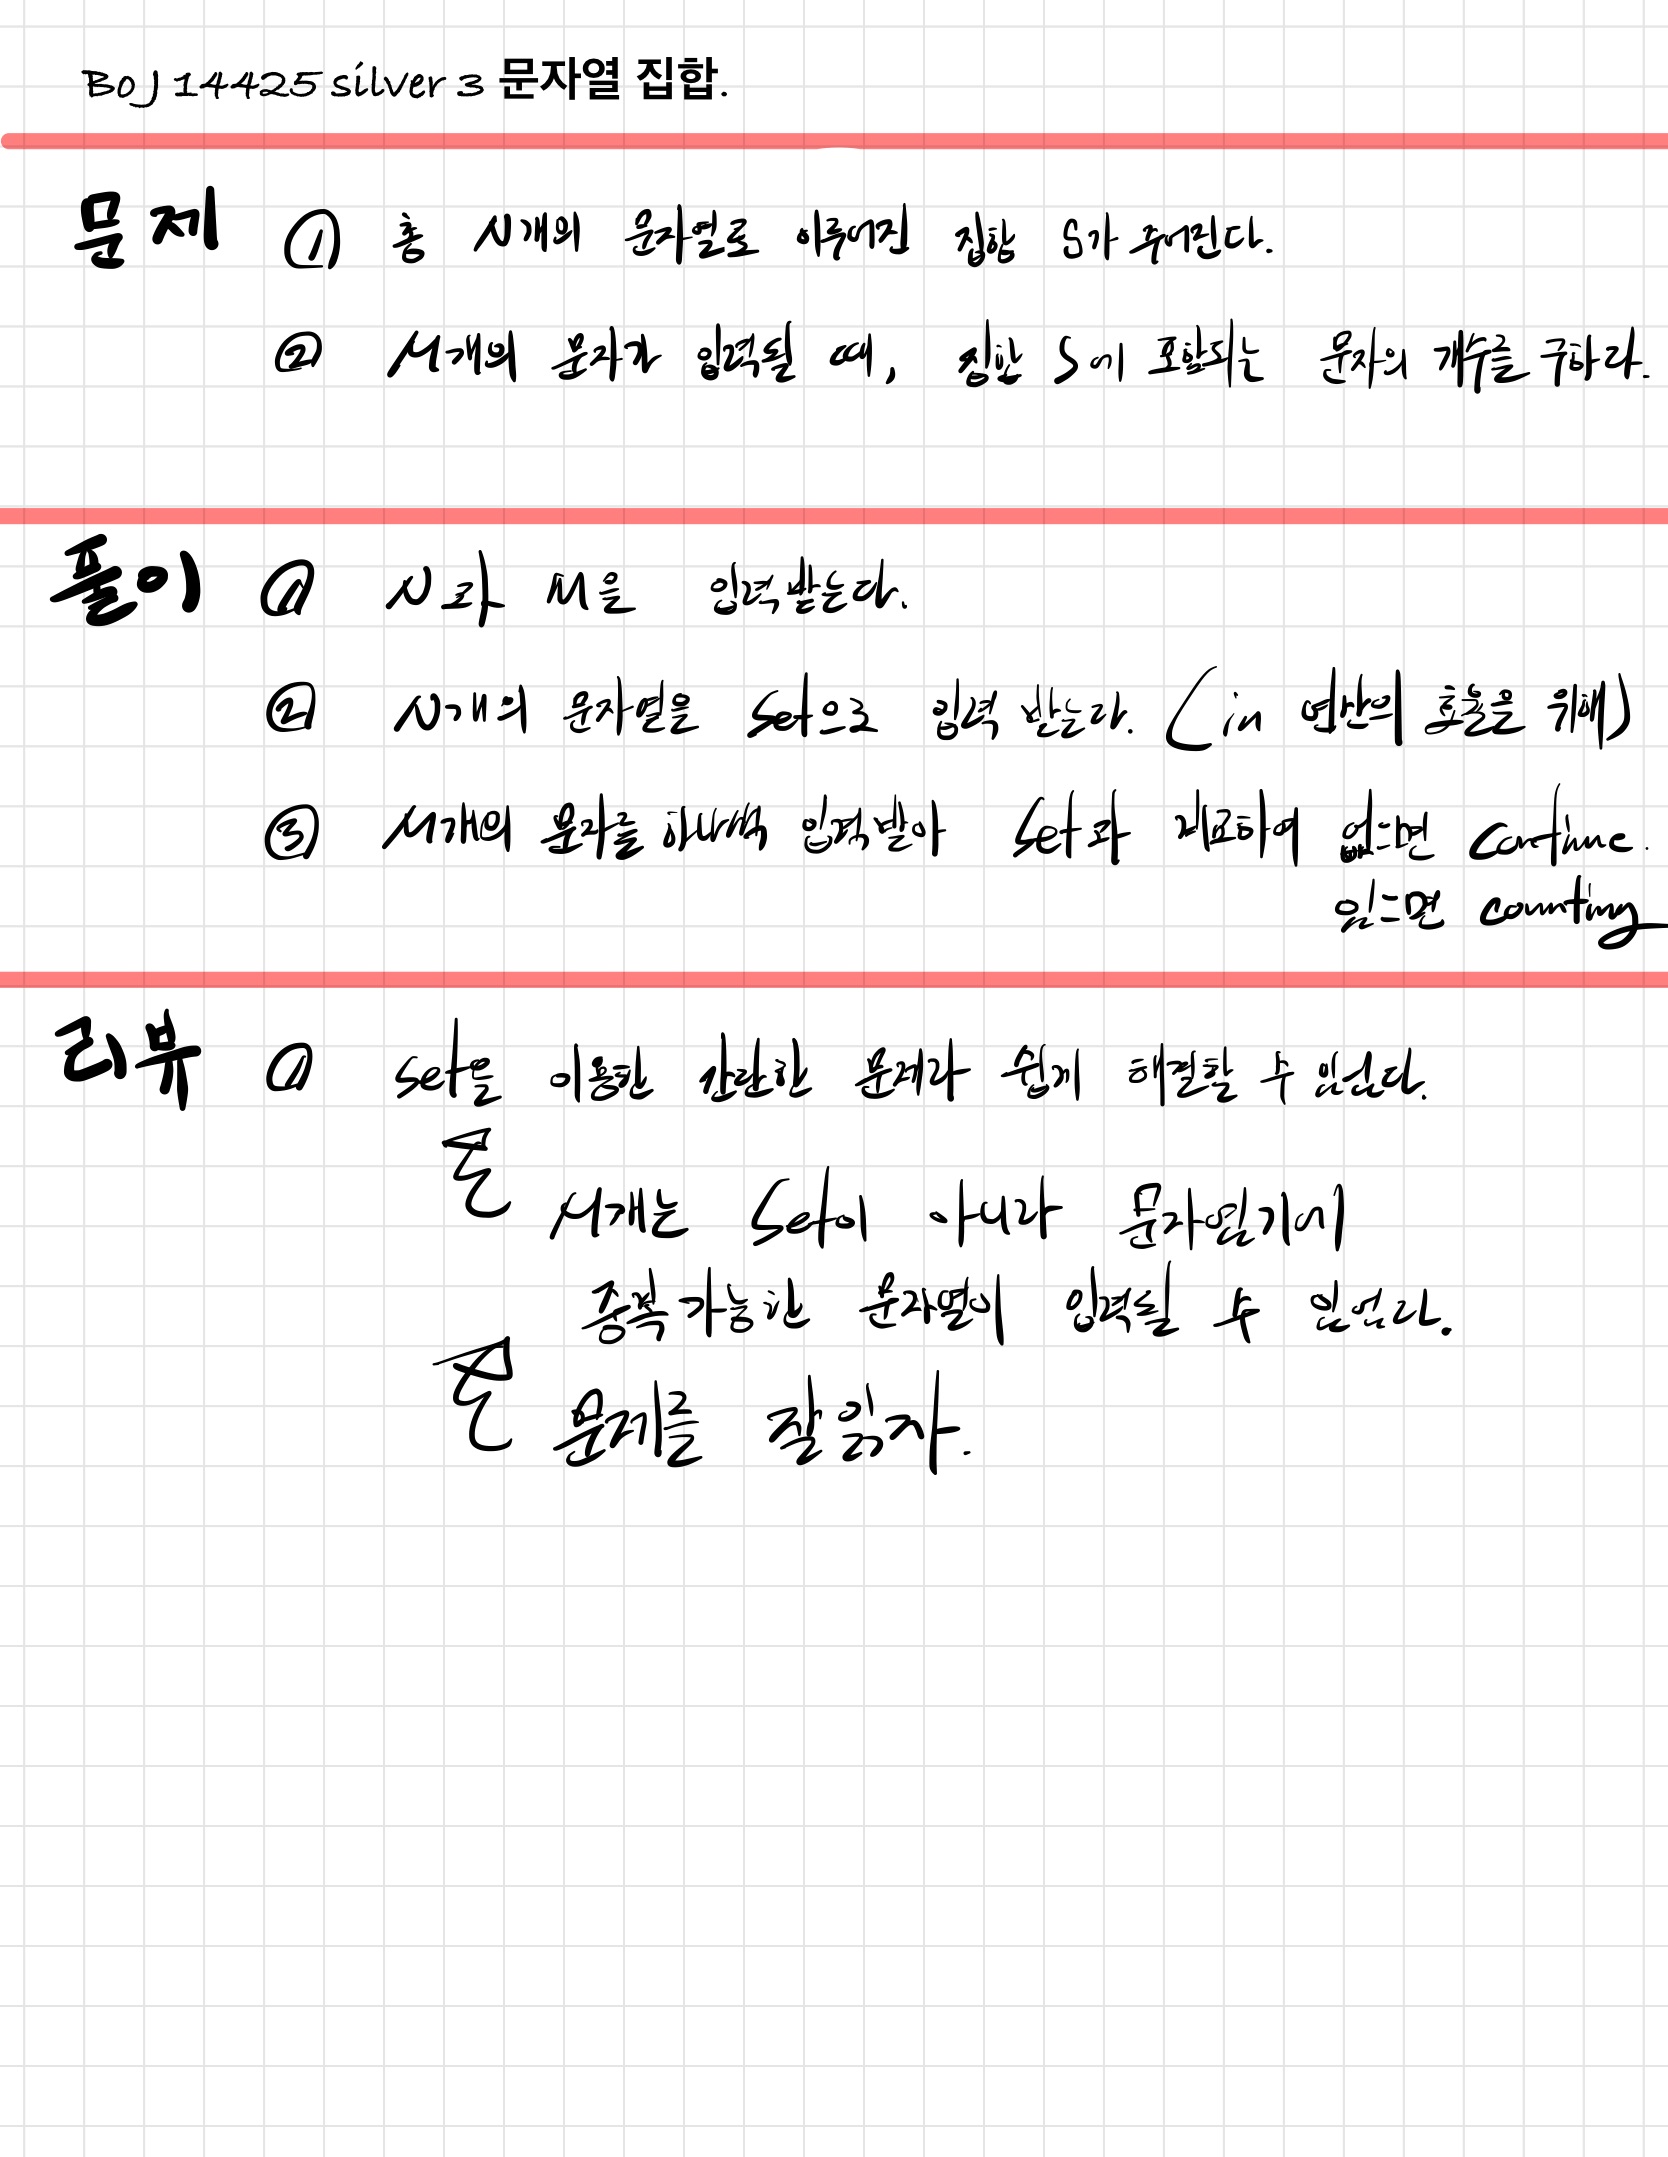 BOJ 14425 silver 3 문자열 집합.
문제 ① 총 N개의 문자열로 이루어진 집합 S가 주어진다.
② M개의 문자가 입력될 때, 집합 S에 포함되는 문자의 개수를 구하라.
풀이 ① N과 M을 입력받는다.
② N개의 문자열을 Set으로 입력 받는다. (in 연산의 효율을 위해)
③ M개의 문자를 하나씩 입력받아 Set과 비교하여 없으면 continue.
있으면 counting
리뷰 ① set을 이용한 간단한 문제라 쉽게 해결할 수 있었다.
M개는 Set이 아니라 문자열기에
중복가능한 문자열이 입력될 수 있었다.
문제를 잘읽자.